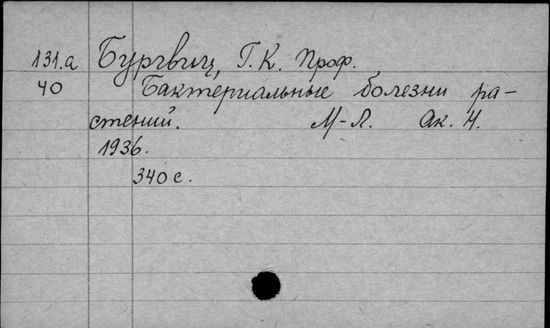 131.а Бургвиц, Г.К. Проф.
40 Бактериальные болезни ра-
стений. М-Л. Ак. Н.
1936.
340 с.